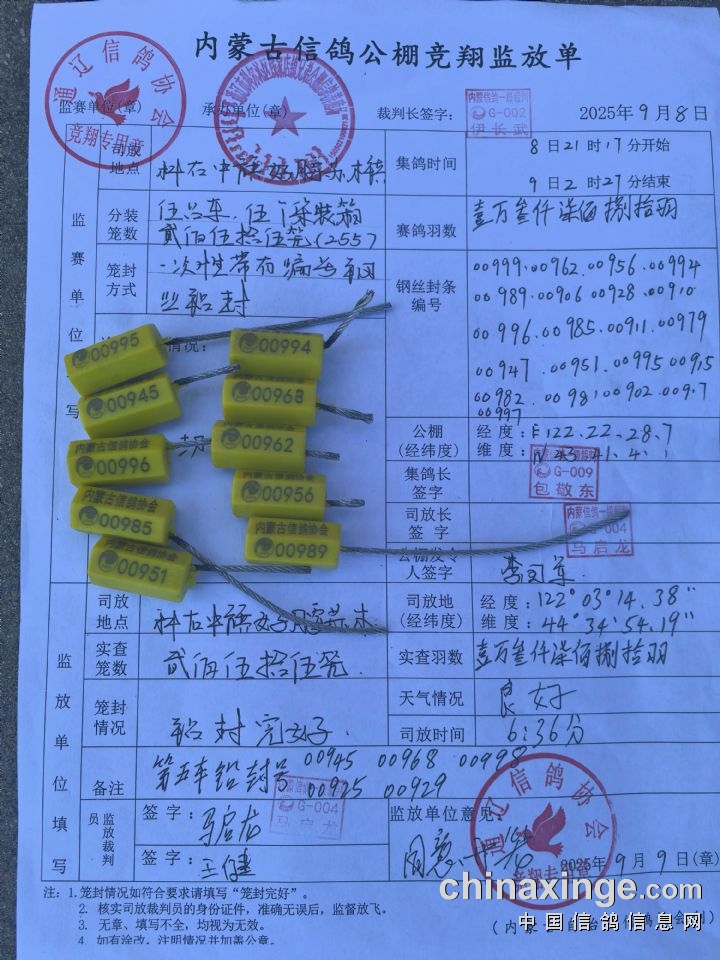 内蒙古信鸽公棚竞翔监放单
通辽信鸽协会
竞翔专用章
监赛单位(章) 承办单位(章) 裁判长签字: 2025年9月8日
内蒙古信鸽一级裁判
G-002
伊长武
司放地点
集鸽时间 8日21时17分开始
9日2时27分结束
监赛单位
分装笼数
贰佰伍拾伍笼(255)
赛鸽羽数 壹万叁仟柒佰捌拾羽
笼封方式 一次性带有编号钢
丝铅封
钢丝封条编号
00999.00962.00956.00994
00989.00906 00928.00910
00996.00985.00911.00979
00947.00951.00995 00915
00982.00981.00902.00917
00997
情况:
00995
00945
内蒙古信鸽协会
00996
内蒙古信鸽协会
00985
内蒙古信鸽协会
00951
00994
00968
00962
00956
内蒙古信鸽协会
00989
写
公棚(经纬度) 经度:E122.22.28.7
维度:
集鸽长签字
G-009
包敬东
司放长签字
内蒙古信鸽一级
-004
马启龙
公棚发令人签字
监放单位填写
司放地点
司放地(经纬度) 经度:122°03°14.38"
维度:44°34'54.19"
实查笼数 贰佰伍拾伍笼
实查羽数 壹万叁仟柒佰捌拾羽
笼封情况 铅封完好.
天气情况 良好
司放时间 6:36分
备注 第五车铅封号 00945 00968 00998
00925 00929
G-004
马启龙
监放裁判员 签字:马启龙
签字:王健
监放单位意见:
同意
通辽信鸽协会
竞翔专用章
2025年9月9日(章)
注:1.笼封情况如符合要求请填写“笼封完好”。
2.核实司放裁判员的身份证件,准确无误后,监督放飞。
3.无章、填写不全,均视为无效。
4.如有涂改,注明情况并加盖公章。
chinaxinge.com
中国信鸽信息网